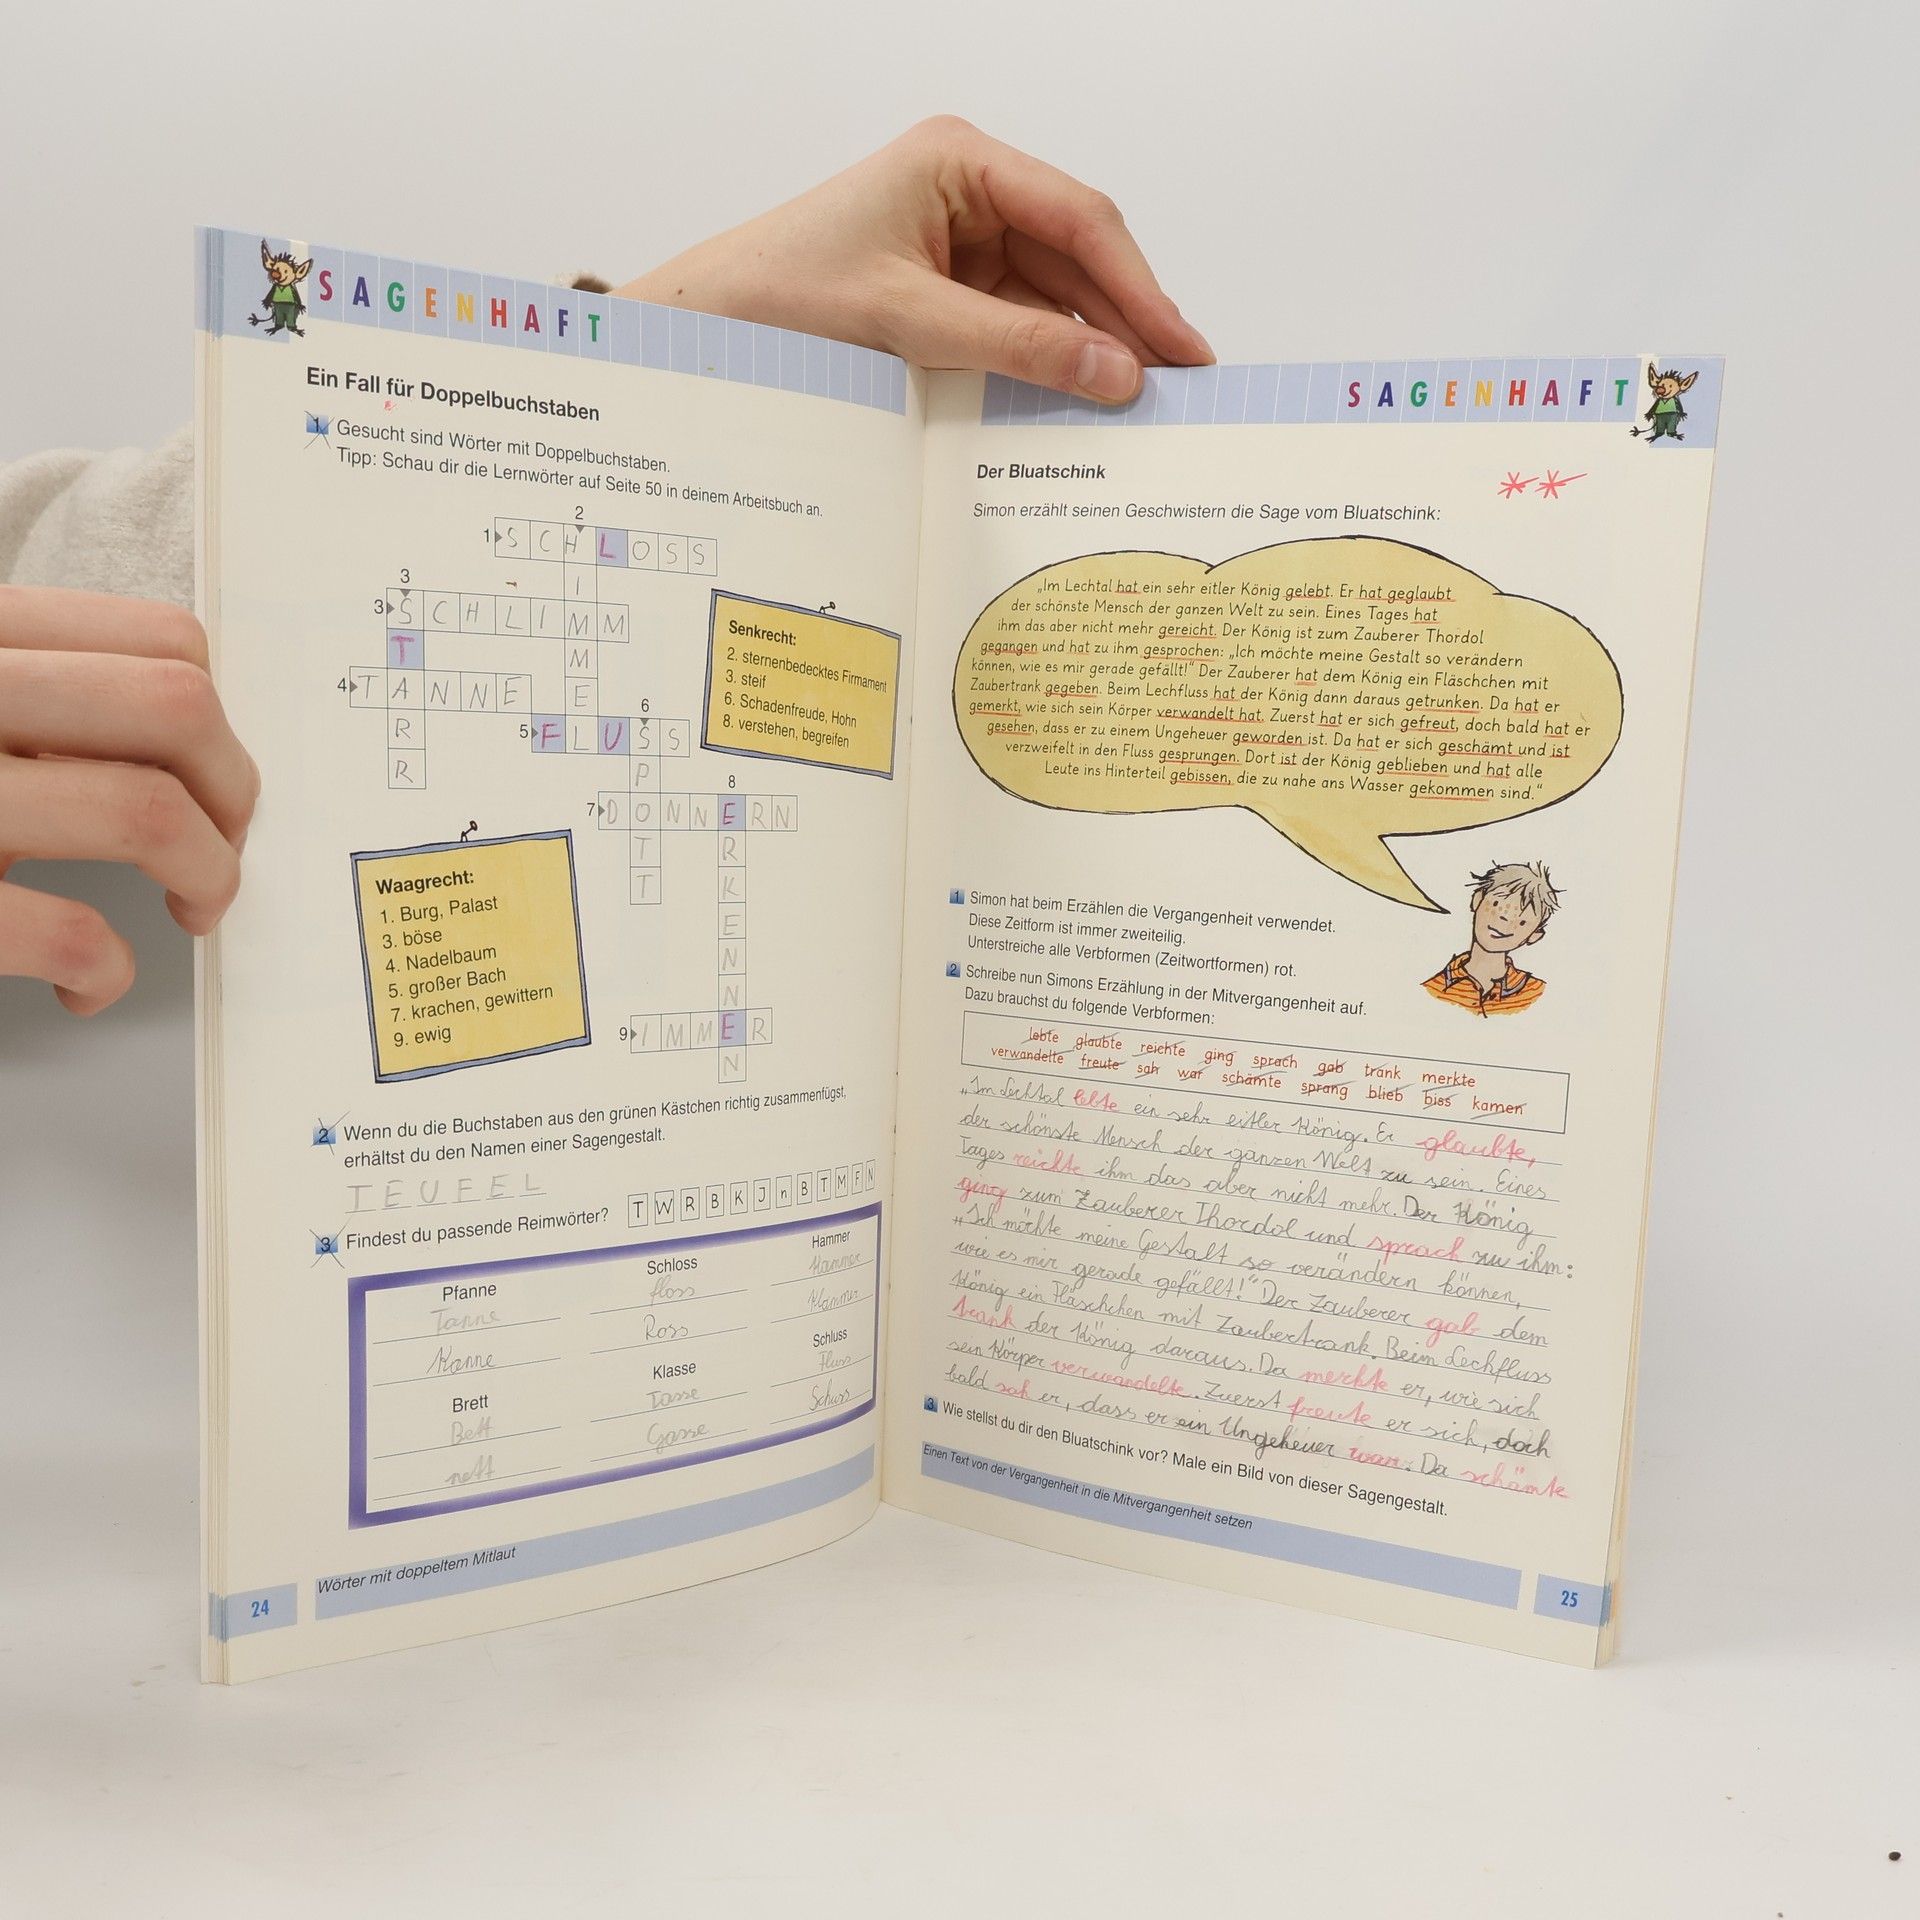 SAGENHAFT
Ein Fall für Doppelbuchstaben
1 Gesucht sind Wörter mit Doppelbuchstaben.
Tipp: Schau dir die Lernwörter auf Seite 50 in deinem Arbeitsbuch an.
2
1 SCHLOSS
I
3
3 SCHLIMM
T M
4 TANNE E
6
R 5 FLUSS
R P
8
7 DONNERN
T R
T K
E
N
N
9 IMMER
N
Senkrecht:
2. sternenbedecktes Firmament
3. steif
6. Schadenfreude, Hohn
8. verstehen, begreifen
Waagrecht:
1. Burg, Palast
3. böse
4. Nadelbaum
5. großer Bach
7. krachen, gewittern
9. ewig
2 Wenn du die Buchstaben aus den grünen Kästchen richtig zusammenfügst,
erhältst du den Namen einer Sagengestalt.
TEUFEL
3 Findest du passende Reimwörter?
T W R B K J n B T M F N
Pfanne Schloss Hammer
Tanne floss Kammer
Kanne Ross Klammer
Brett Klasse Schluss
Bett Tasse Fluss
nett Gasse Schuss
Wörter mit doppeltem Mitlaut
24
SAGENHAFT
Der Bluatschink
Simon erzählt seinen Geschwistern die Sage vom Bluatschink:
„Im Lechtal hat ein sehr eitler König gelebt. Er hat geglaubt
der schönste Mensch der ganzen Welt zu sein. Eines Tages hat
ihm das aber nicht mehr gereicht. Der König ist zum Zauberer Thordol
gegangen und hat zu ihm gesprochen: „Ich möchte meine Gestalt so verändern
können, wie es mir gerade gefällt!“ Der Zauberer hat dem König ein Fläschchen mit
Zaubertrank gegeben. Beim Lechfluss hat der König dann daraus getrunken. Da hat er
gemerkt, wie sich sein Körper verwandelt hat. Zuerst hat er sich gefreut, doch bald hat er
gesehen, dass er zu einem Ungeheuer geworden ist. Da hat er sich geschämt und ist
verzweifelt in den Fluss gesprungen. Dort ist der König geblieben und hat alle
Leute ins Hinterteil gebissen, die zu nahe ans Wasser gekommen sind.“
1 Simon hat beim Erzählen die Vergangenheit verwendet.
Diese Zeitform ist immer zweiteilig.
Unterstreiche alle Verbformen (Zeitwortformen) rot.
2 Schreibe nun Simons Erzählung in der Mitvergangenheit auf.
Dazu brauchst du folgende Verbformen:
lebte glaubte reichte ging sprach gab trank merkte
verwandelte freute sah war schämte sprang blieb biss kamen
„Im Lechtal lebte ein sehr eitler König. Er glaubte,
der schönste Mensch der ganzen Welt zu sein. Eines
Tages reichte ihm das aber nicht mehr. Der König
ging zum Zauberer Thordol und sprach zu ihm:
„Ich möchte meine Gestalt so verändern können,
wie es mir gerade gefällt!“ Der Zauberer gab dem
König ein Fläschchen mit Zaubertrank. Beim Lechfluss
trank der König daraus. Da merkte er, wie sich
sein Körper verwandelte. Zuerst freute er sich, doch
bald sah er, dass er ein Ungeheuer war. Da schämte
3 Wie stellst du dir den Bluatschink vor? Male ein Bild von dieser Sagengestalt.
Einen Text von der Vergangenheit in die Mitvergangenheit setzen
25